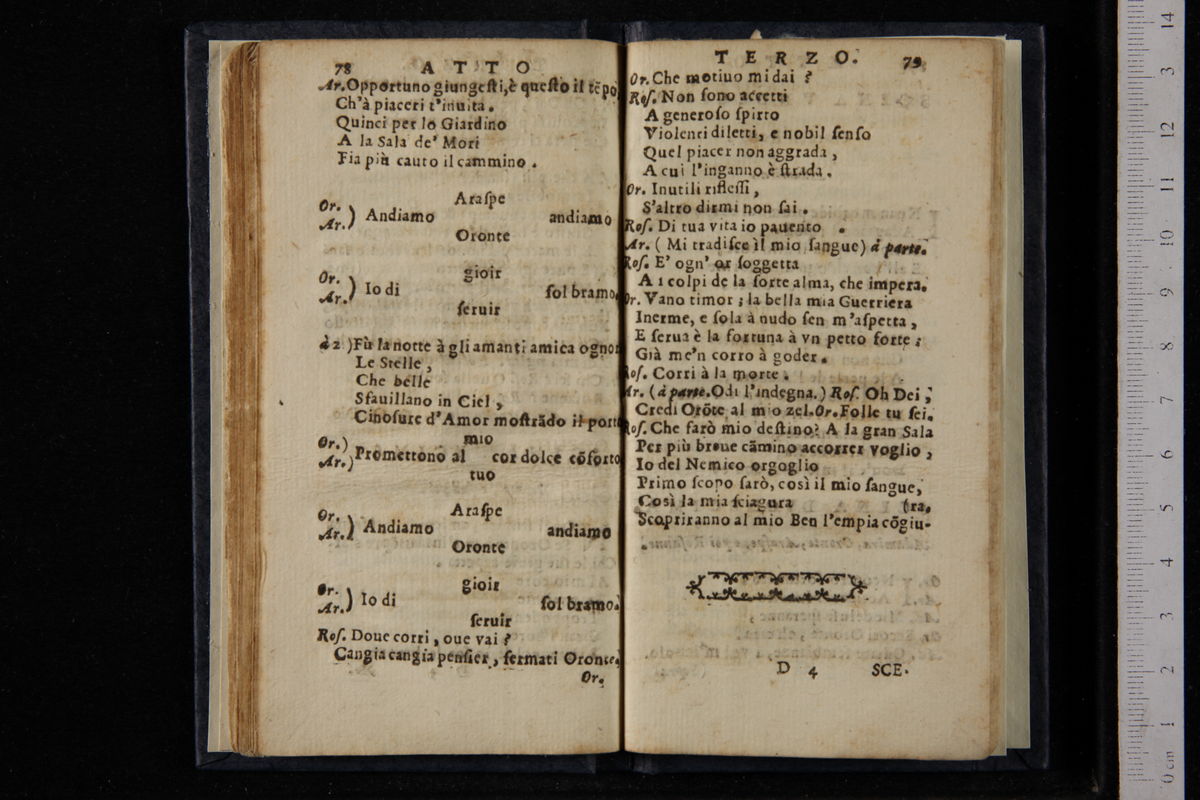 78 ATTO
Ar. Opportuno giungeſti, è queſto il tẽpo
Ch'à piaceri t'inuita.
Quinci per lo Giardino
A la Sala de' Mori
Fia più cauto il cammino.
Araſpe
Or. Ar. ) Andiamo andiamo
Oronte
gioir
Or. Ar. ) Io di ſol bramo.
ſeruir
à 2 ) Fù la notte à gli amanti amica ognor
Le Stelle,
Che belle
Sfauillano in Ciel,
Cinoſure d'Amor moſtrãdo il
mio
Or. ) Ar. ) Promettono al cor dolce cõforto
tuo
Araſpe
Or. Ar. ) Andiamo andiamo
Oronte
gioir
Or. Ar. ) Io di ſol bramo.
ſeruir
Roſ. Doue corri, oue vai?
Cangia cangia penſier, fermati Oronte.
Or.
TERZO. 79
Or. Che motiuo mi dai?
Roſ. Non ſono accetti
A generoſo ſpirto
Violenti diletti, e nobil ſenſo
Quel piacer non aggrada,
A cui l'inganno è ſtrada.
Or. Inutili rifleſſi,
S'altro dirmi non ſai.
Roſ. Di tua vita io pauento.
Ar. ( Mi tradiſce il mio ſangue) à parte.
Roſ. E' ogn' or ſoggetta
A i colpi de la ſorte alma, che impera.
Or. Vano timor; la bella mia Guerriera
Inerme, e ſola à nudo ſen m'aſpetta,
E ſerua è la fortuna à vn petto forte;
Già me'n corro à goder.
Roſ. Corri à la morte.
Ar. (à parte. Odi l'indegna.) Roſ. Oh Dei,
Credi Orõte al mio zel. Or. Folle tu ſei.
Roſ. Che farò mio deſtino? A la gran Sala
Per più breue cãmino accorrer voglio,
Io del Nemico orgoglio
Primo ſcopo ſarò, così il mio ſangue,
Così la mia ſciagura (ra.
Scopriranno al mio Ben l'empia cõgiu-
D 4 SCE.
14
3
12
11
10
9
8
7
6
5
4
3
2
1
0 cm